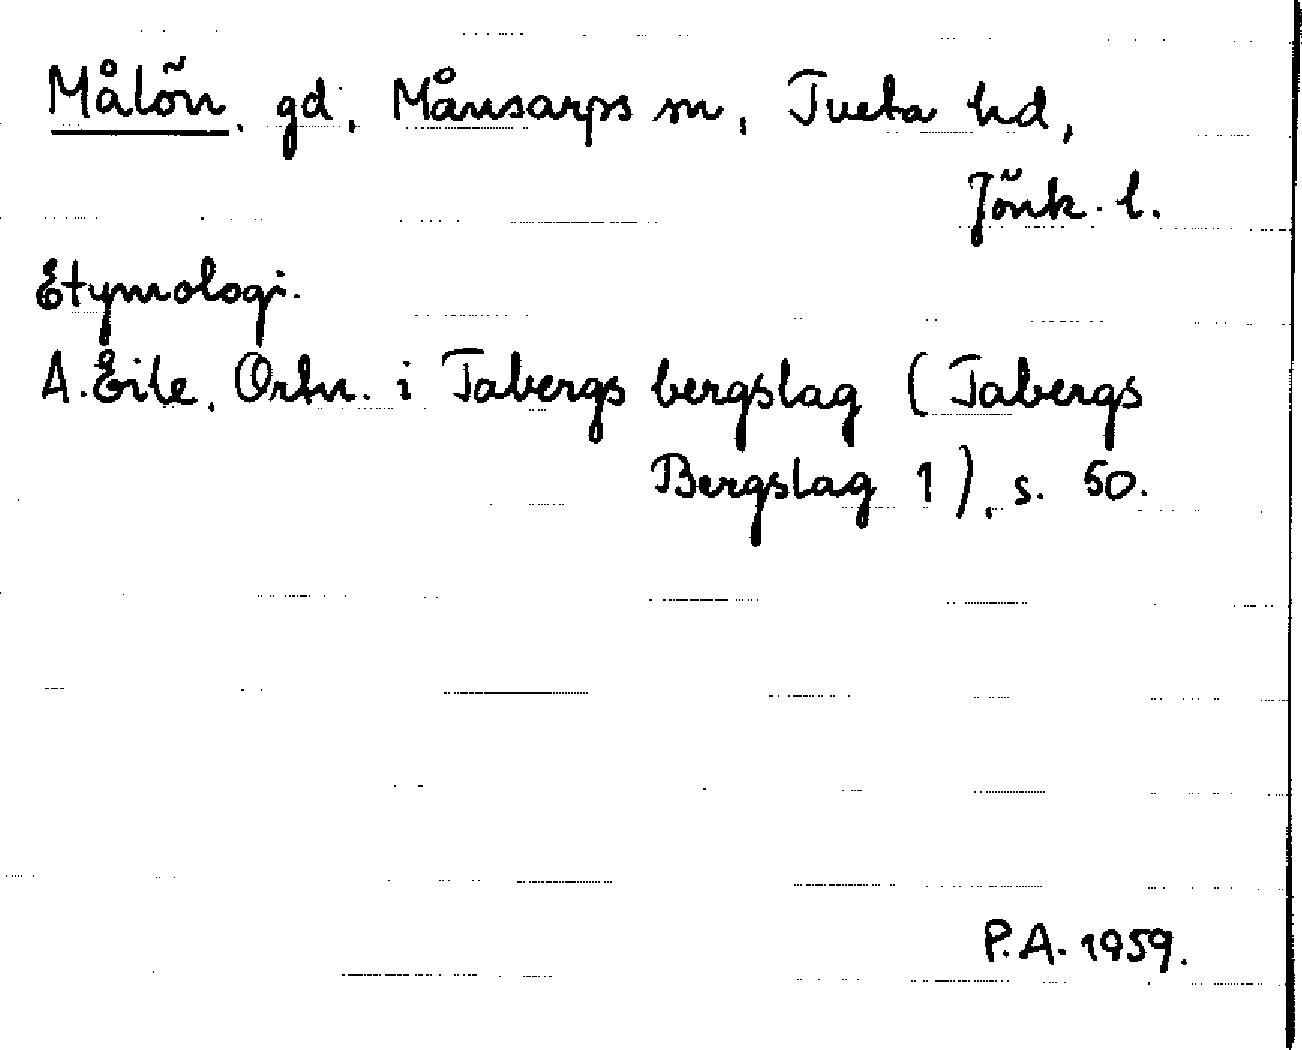 Målön, gd, Månsarps sn, Tveta hd,
Jönk. l.
Etymologi.
A. Eile, Ortn. i Tabergs bergslag (Tabergs
Bergslag 1), s. 50.
P.A. 1959.